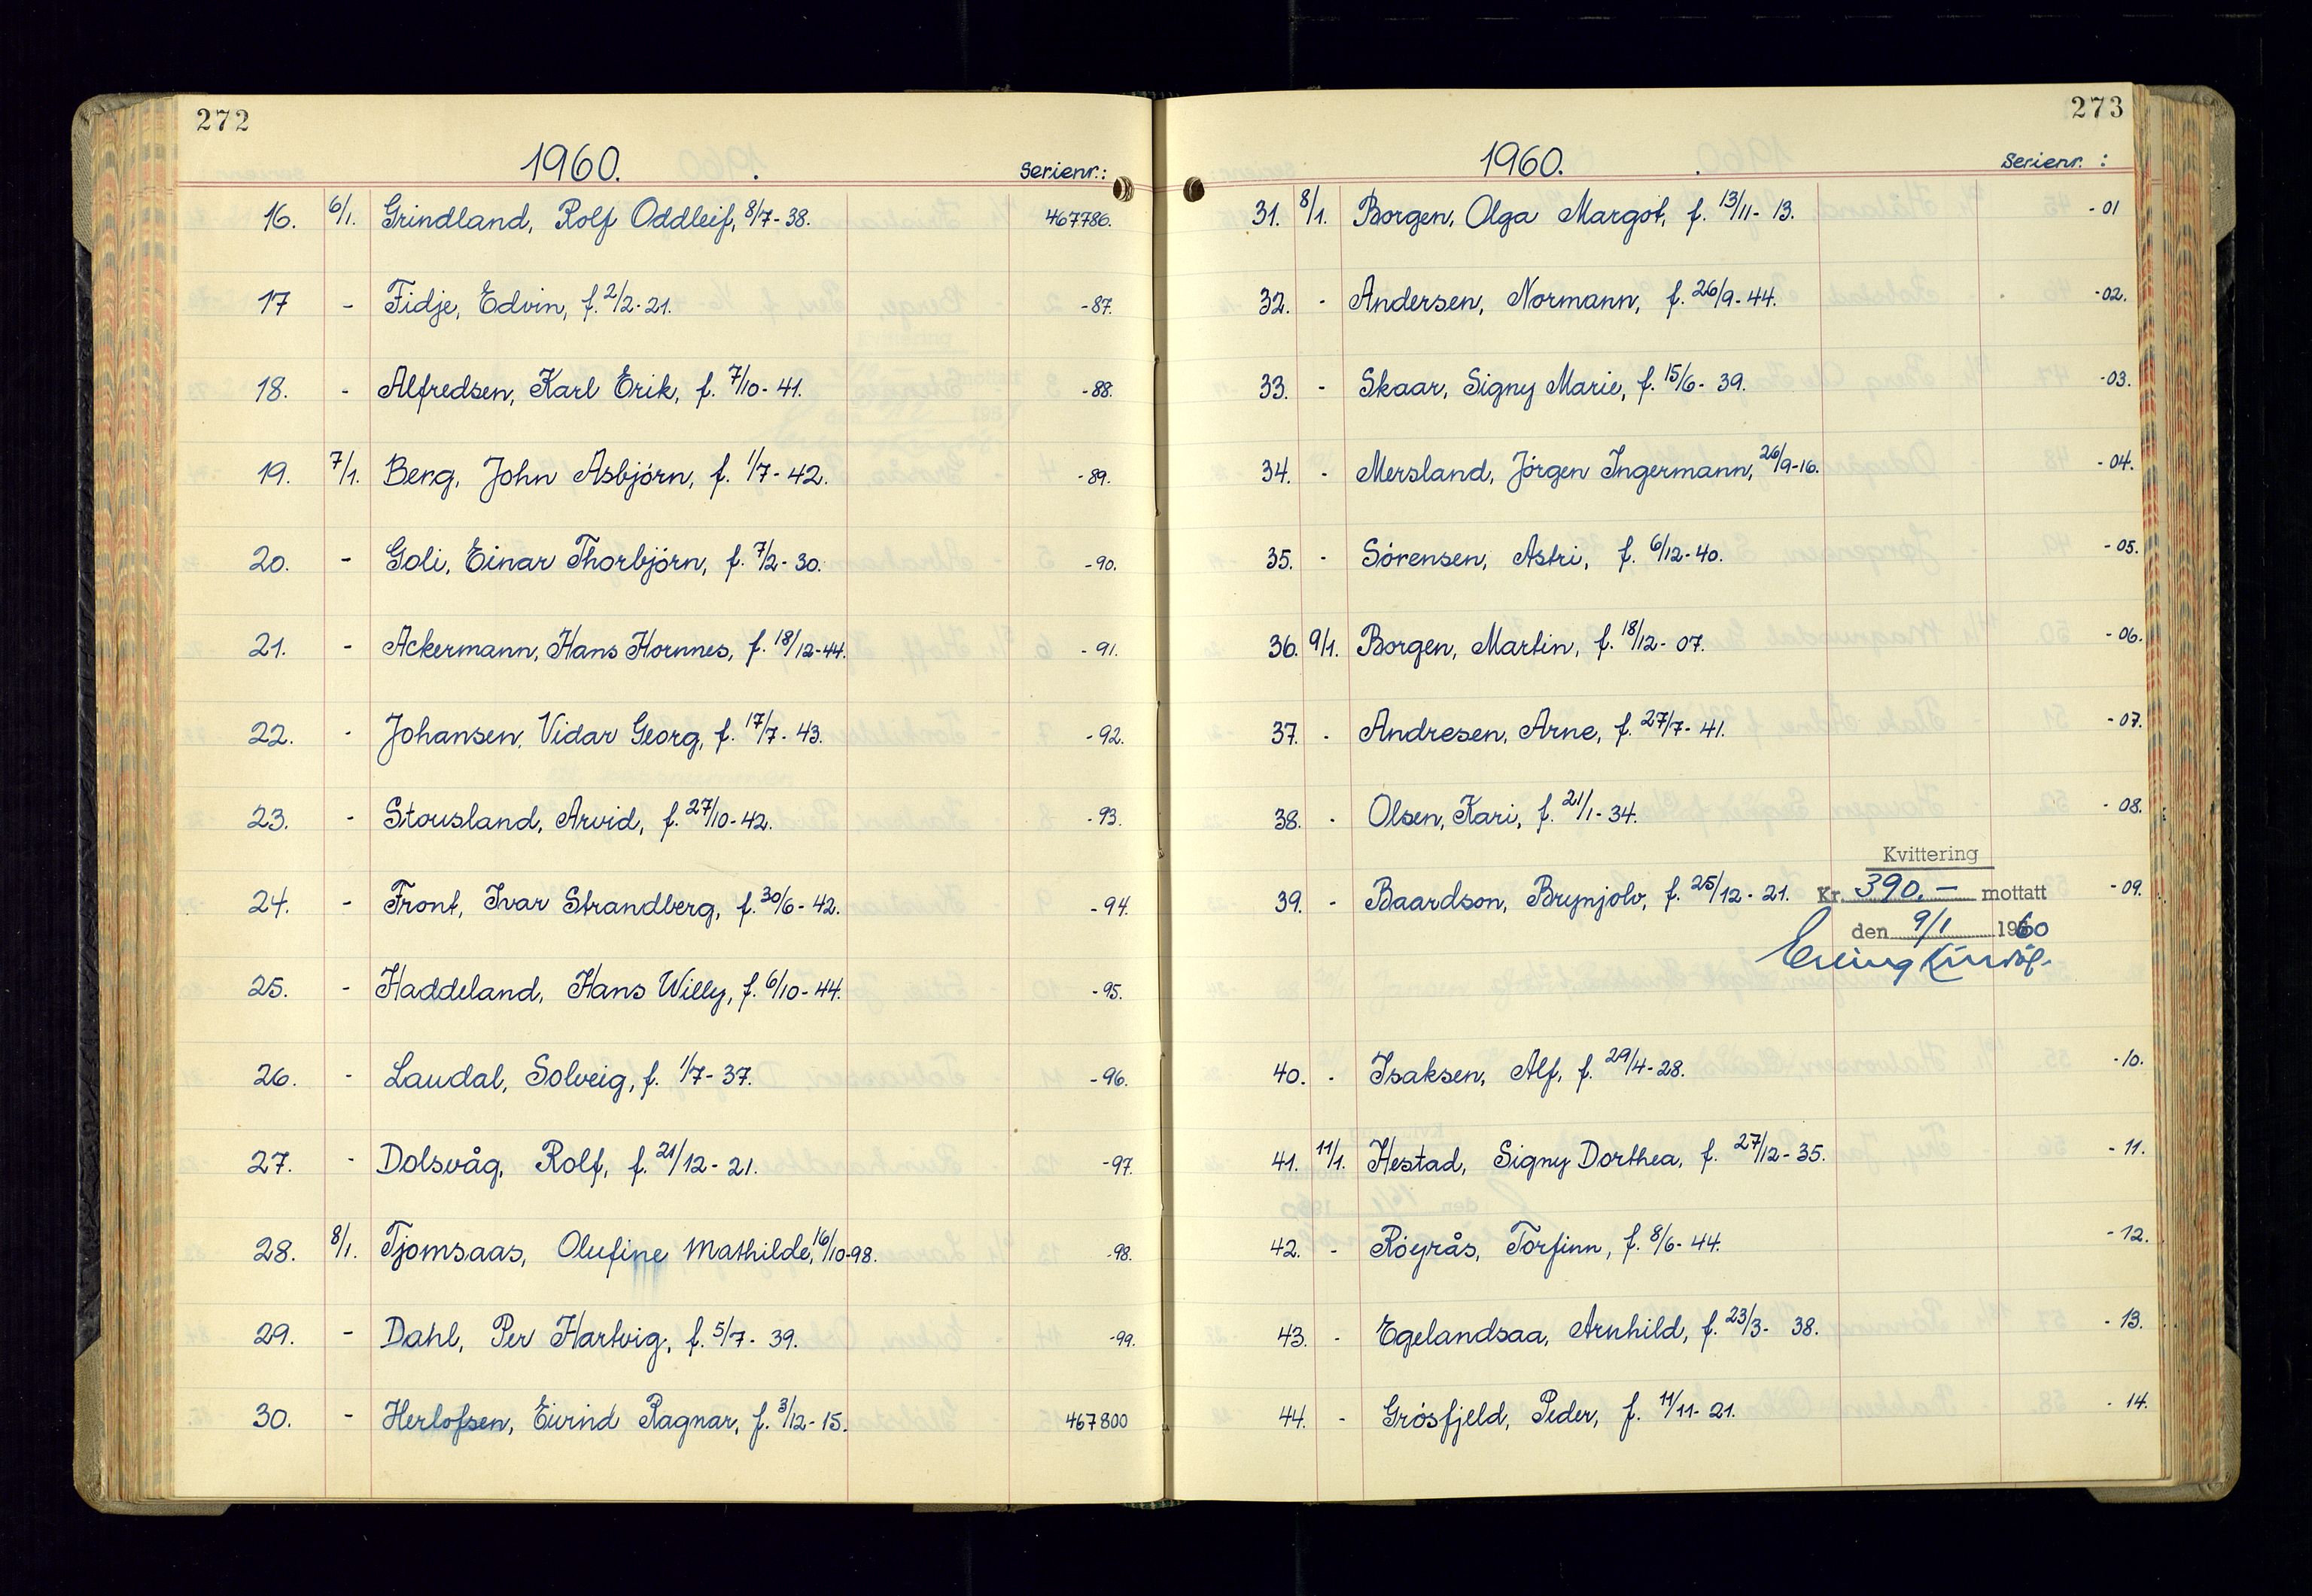 272
1960.
Serienr.:
16. 6/1. Grindland, Rolf Oddleif, 8/7-38. 467786.
17 - Fidje, Edvin, f. 2/2-21. -87.
18. - Alfredsen, Karl Erik, f. 7/10-41. -88.
19. 7/1. Berg, John Asbjörn, f. 1/7-42. -89.
20. - Goli, Einar Thorbjörn, f. 7/2-30. -90.
21. - Ackermann, Hans Hornnes, f. 18/12-44. -91.
22. - Johansen, Vidar Georg, f. 17/7-43. -92.
23. - Stousland, Arvid, f. 27/10-42. -93.
24. - Front, Ivar Strandberg, f. 30/6-42. -94.
25. - Haddeland, Hans Willy, f. 6/10-44. -95.
26. - Laudal, Solveig, f. 1/7-37. -96.
27. - Dolsvåg, Rolf, f. 21/12-21. -97.
28. 8/1. Tjomsaas, Olufine Mathilde, 16/10-98. -98.
29. - Dahl, Per Hartvig, f. 5/7-39. -99.
30. - Herlofsen, Eivind Ragnar, f. 3/12-15. 467800
273
1960.
Serienr.:
31. 8/1. Borgen, Olga Margot, f. 13/11-13. -01
32. - Andersen, Normann, f. 26/9-44. -02.
33. - Skaar, Signy Marie, f. 15/6-39. -03.
34. - Mersland, Jörgen Ingermann, 26/9-16. -04.
35. - Sörensen, Astri, f. 6/12-40. -05.
36. 9/1. Borgen, Martin, f. 18/12-07. -06.
37. - Andresen, Arne, f. 27/7-41. -07.
38. - Olsen, Kari, f. 21/1-34. -08.
Kvittering
39. - Baardson, Brynjolv, f. 25/12-21. Kr. 390.- mottatt -09.
den 9/1 1960
40. - Isaksen, Alf, f. 29/4-28. -10.
41. 11/1. Hestad, Signy Dorthea, f. 27/12-35. -11.
42. - Röyrås, Torfinn, f. 8/6-44. -12.
43. - Egelandsaa, Arnhild, f. 23/3-38. -13.
44. - Grösfjeld, Peder, f. 11/11-21. -14.